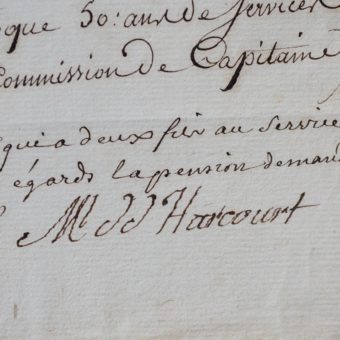 oque 50: ans de services
Commission de Capitaine
qui a deux fils au service
égards la pension deman
M. d'Harcourt